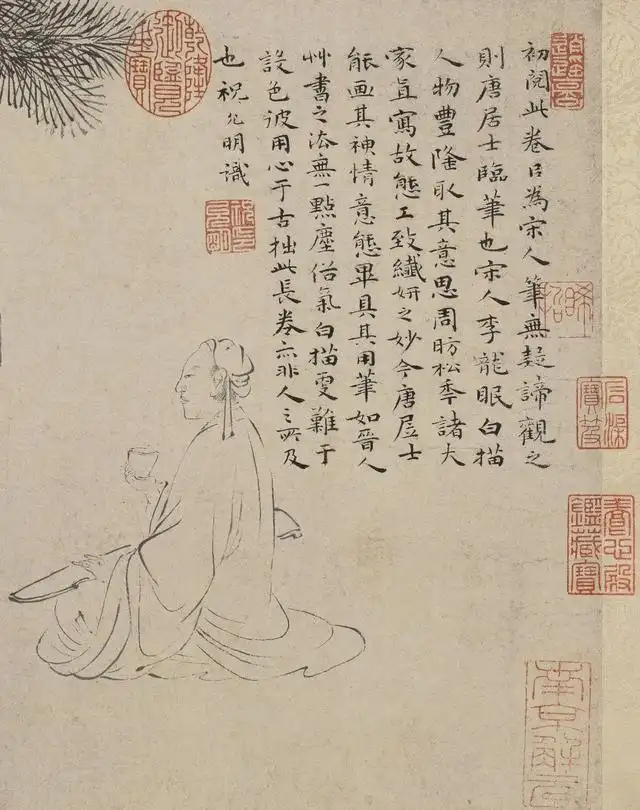 初閱此卷㠯為宋人筆無疑諦觀之
則唐居士臨筆也宋人李龍眠白描
人物豐隆取其意思周昉松年諸大
家直寫故態工致纖妍之妙今唐居士
能画其神情意態畢具其用筆如晉人
艸書之法無一點塵俗氣白描更難于
設色彼用心于古拙此長卷亦非人之所及
也祝允明識
乾隆御覽之寶
石渠寶笈
養心殿鑑藏寶
南京解元